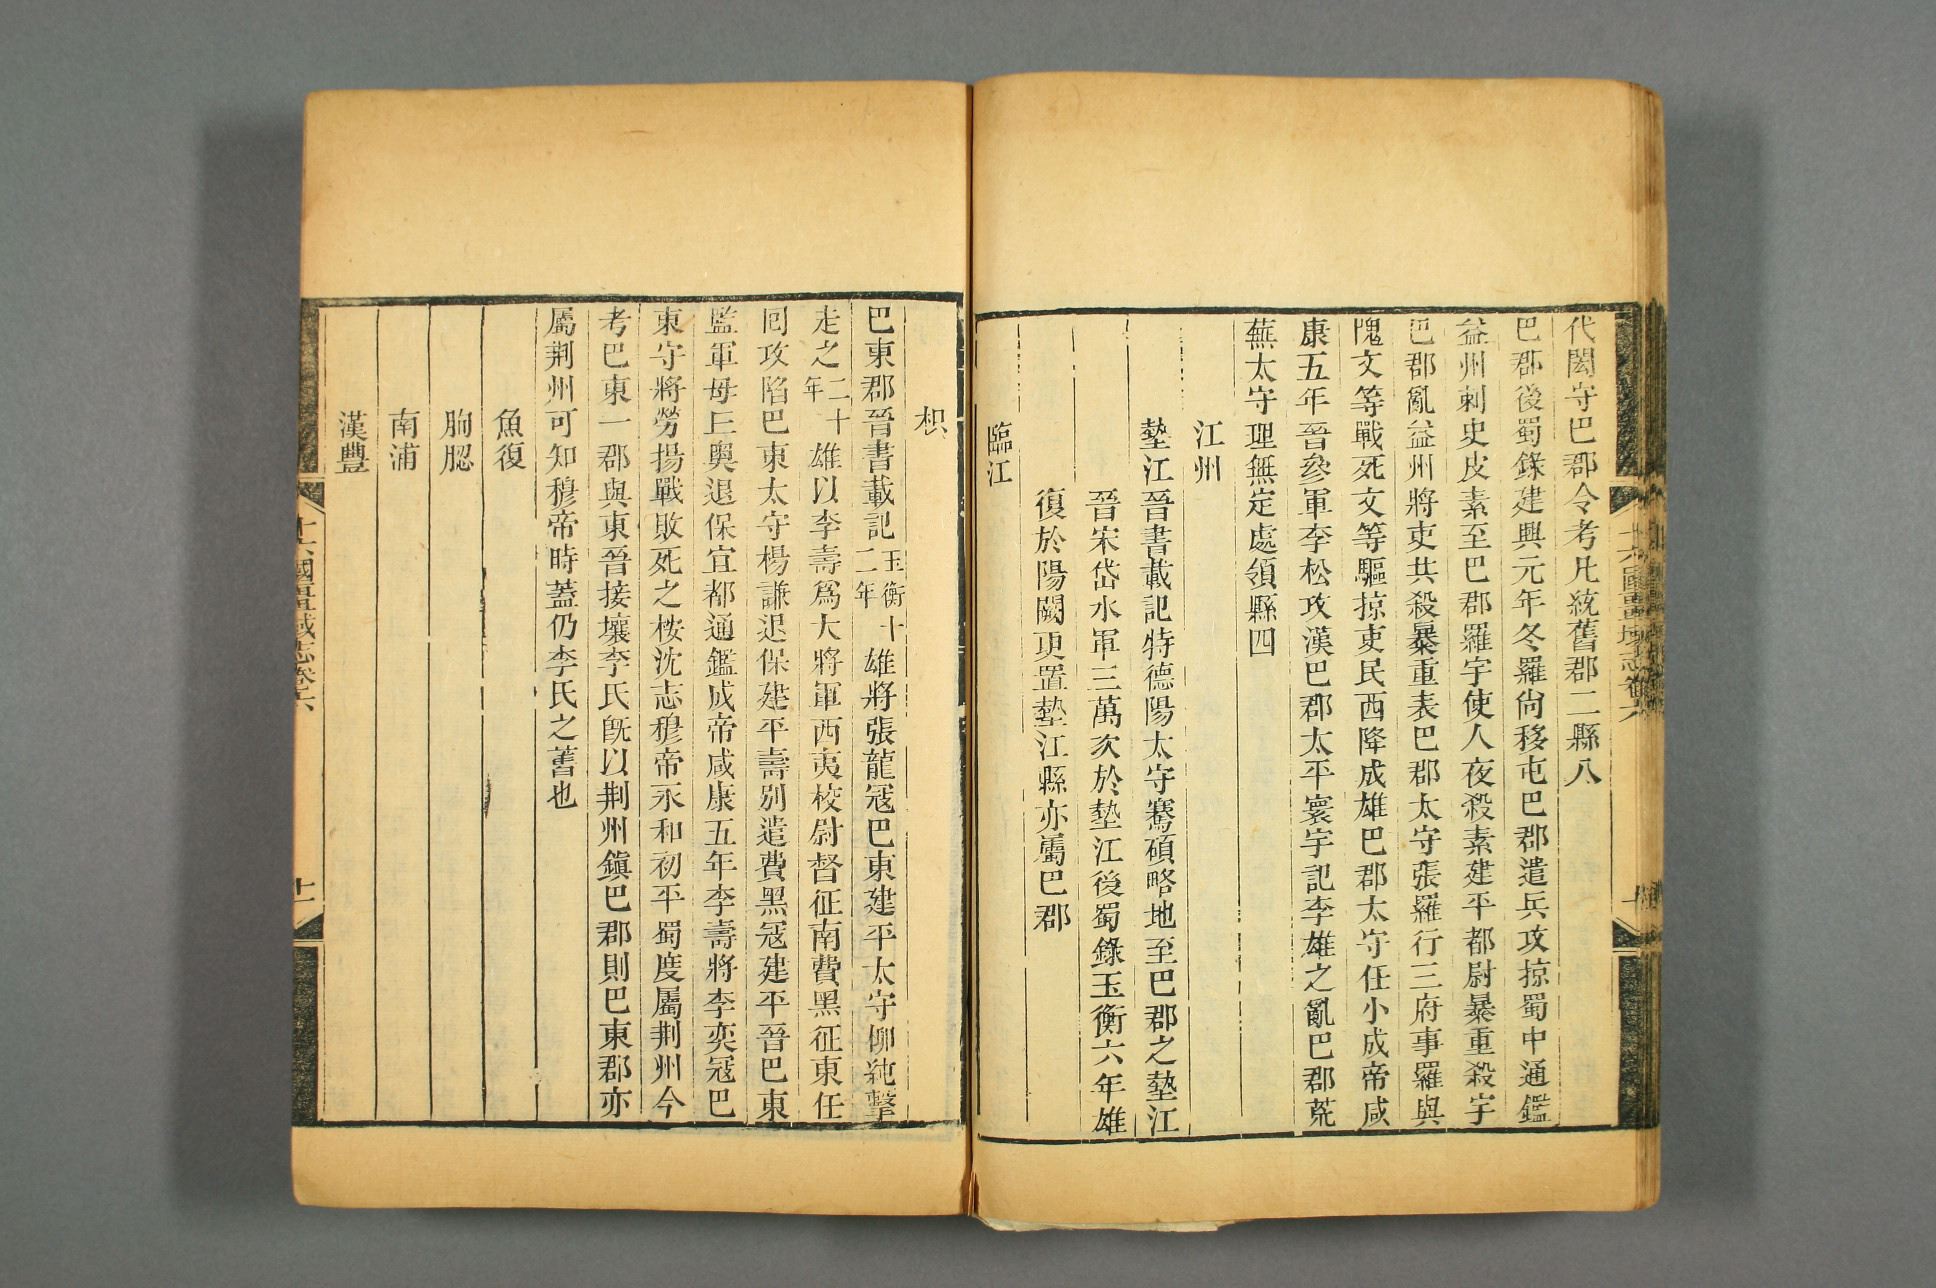 代閎守巴郡令考凡統舊郡二縣八
巴郡後蜀錄建興元年冬羅尙移屯巴郡遣兵攻掠蜀中通鑑
益州刺史皮素至巴郡羅宇使人夜殺素建平都尉暴重殺宇
巴郡亂益州將吏共殺暴重表巴郡太守張羅行三府事羅與
隗文等戰死文等驅掠吏民西降成雄巴郡太守任小成帝咸
康五年晉參軍李松攻漢巴郡太平寰宇記李雄之亂巴郡荒
蕪太守理無定處領縣四
江州
墊江晉書載記特德陽太守騫碩略地至巴郡之墊江
晉宋岱水軍三萬次於墊江後蜀錄玉衡六年雄
復於陽關更置墊江縣亦屬巴郡
臨江
枳
巴東郡晉書載記玉衡十二年雄將張龍寇巴東建平太守柳純擊
走之二十年雄以李壽爲大將軍西夷校尉督征南費黑征東任
囘攻陷巴東太守楊謙退保建平壽別遣費黑寇建平晉巴東
監軍毋丘奧退保宜都通鑑成帝咸康五年李壽將李奕寇巴
東守將勞揚戰敗死之桉沈志穆帝永和初平蜀度屬荆州今
考巴東一郡與東晉接壤李氏旣以荆州鎭巴郡則巴東郡亦
屬荆州可知穆帝時蓋仍李氏之舊也
魚復
朐䏰
南浦
漢豐
十六國疆域志卷六
十一